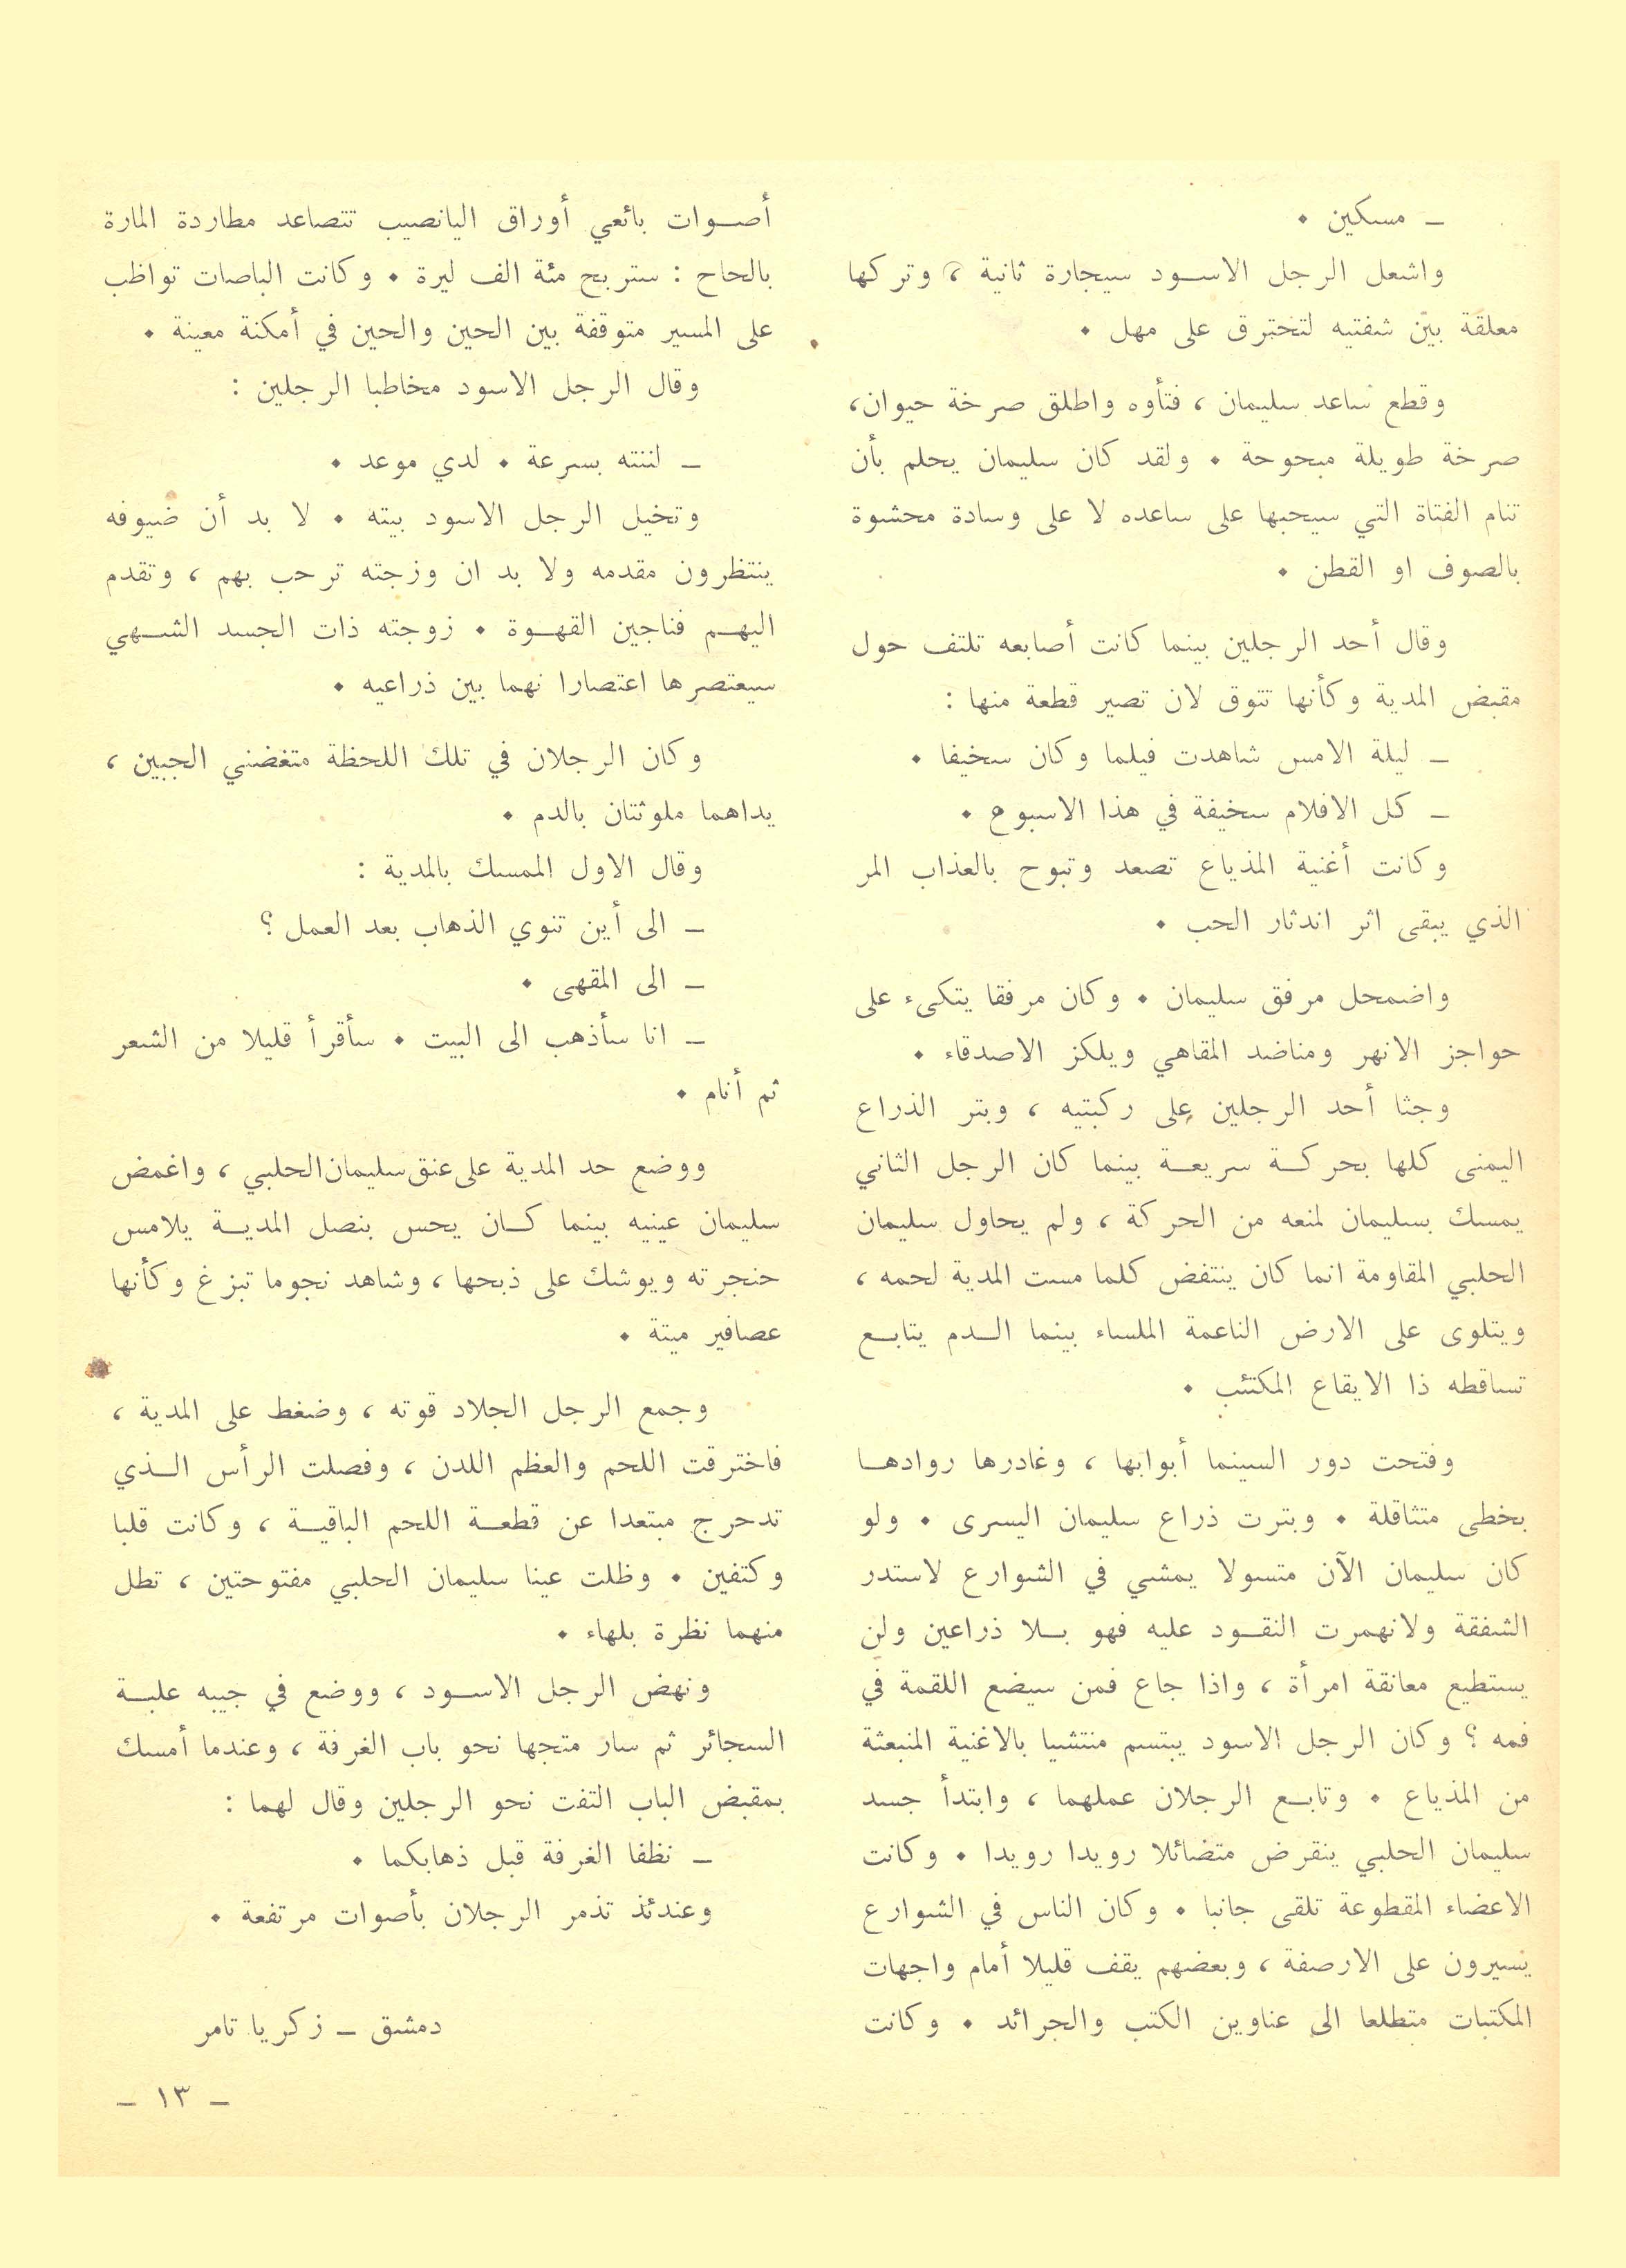 ـ مسكين ٠
واشعل الرجل الاسود سيجارة ثانية ، وتركها
معلقة بين شفتيه لتحترق على مهل ٠
وقطع ساعد سليمان ، فتأوه واطلق صرخة حيوان،
صرخة طويلة مبحوحة ٠ ولقد كان سليمان يحلم بأن
تنام الفتاة التي سيحبها على ساعده لا على وسادة محشوة
بالصوف او القطن ٠
وقال أحد الرجلين بينما كانت أصابعه تلتف حول
مقبض المدية وكأنها تتوق لان تصير قطعة منها :
ـ ليلة الامس شاهدت فيلما وكان سخيفا ٠
ـ كل الافلام سخيفة في هذا الاسبوع ٠
وكانت أغنية المذياع تصعد وتبوح بالعذاب المر
الذي يبقى اثر اندثار الحب ٠
واضمحل مرفق سليمان ٠ وكان مرفقا يتكىء على
حواجز الانهر ومناضد المقاهي ويلكز الاصدقاء ٠
وجثا أحد الرجلين على ركبتيه ، وبتر الذراع
اليمنى كلها بحركة سريعة بينما كان الرجل الثاني
يمسك بسليمان لمنعه من الحركة ، ولم يحاول سليمان
الحلبي المقاومة انما كان ينتفض كلما مست المدية لحمه ،
ويتلوى على الارض الناعمة الملساء بينما الدم يتابع
تساقطه ذا الايقاع المكتئب ٠
وفتحت دور السينما أبوابها ، وغادرها روادها
بخطى متثاقلة ٠ وبترت ذراع سليمان اليسرى ٠ ولو
كان سليمان الآن متسولا يمشي في الشوارع لاستدر
الشفقة ولانهمرت النقود عليه فهو بلا ذراعين ولن
يستطيع معانقة امرأة ، واذا جاع فمن سيضع اللقمة في
فمه ؟ وكان الرجل الاسود يبتسم منتشيا بالاغنية المنبعثة
من المذياع ٠ وتابع الرجلان عملهما ، وابتدأ جسد
سليمان الحلبي ينقرض متضائلا رويدا رويدا ٠ وكانت
الاعضاء المقطوعة تلقى جانبا ٠ وكان الناس في الشوارع
يسيرون على الارصفة ، وبعضهم يقف قليلا أمام واجهات
المكتبات متطلعا الى عناوين الكتب والجرائد ٠ وكانت
أصوات بائعي أوراق اليانصيب تتصاعد مطاردة المارة
بالحاح : ستربح مئة الف ليرة ٠ وكانت الباصات تواظب
على المسير متوقفة بين الحين والحين في أمكنة معينة ٠
وقال الرجل الاسود مخاطبا الرجلين :
ـ لننته بسرعة ٠ لدي موعد ٠
وتخيل الرجل الاسود بيته ٠ لا بد أن ضيوفه
ينتظرون مقدمه ولا بد ان وزجته ترحب بهم ، وتقدم
اليهم فناجين القهوة ٠ زوجته ذات الجسد الشهي
سيعتصرها اعتصارا نهما بين ذراعيه ٠
وكان الرجلان في تلك اللحظة متغضني الجبين ،
يداهما ملوثتان بالدم ٠
وقال الاول الممسك بالمدية :
ـ الى أين تنوي الذهاب بعد العمل ؟
ـ الى المقهى ٠
ـ انا سأذهب الى البيت ٠ سأقرأ قليلا من الشعر
ثم أنام ٠
ووضع حد المدية على عنق سليمان الحلبي ، واغمض
سليمان عينيه بينما كان يحس بنصل المدية يلامس
حنجرته ويوشك على ذبحها ، وشاهد نجوما تبزغ وكأنها
عصافير ميتة ٠
وجمع الرجل الجلاد قوته ، وضغط على المدية ،
فاخترقت اللحم والعظم اللدن ، وفصلت الرأس الذي
تدحرج مبتعدا عن قطعة اللحم الباقية ، وكانت قلبا
وكتفين ٠ وظلت عينا سليمان الحلبي مفتوحتين ، تطل
منهما نظرة بلهاء ٠
ونهض الرجل الاسود ، ووضع في جيبه علبة
السجائر ثم سار متجها نحو باب الغرفة ، وعندما أمسك
بمقبض الباب التفت نحو الرجلين وقال لهما :
ـ نظفا الغرفة قبل ذهابكما ٠
وعندئذ تذمر الرجلان بأصوات مرتفعة ٠
دمشق ـ زكريا تامر
ـ ١٣ ـ